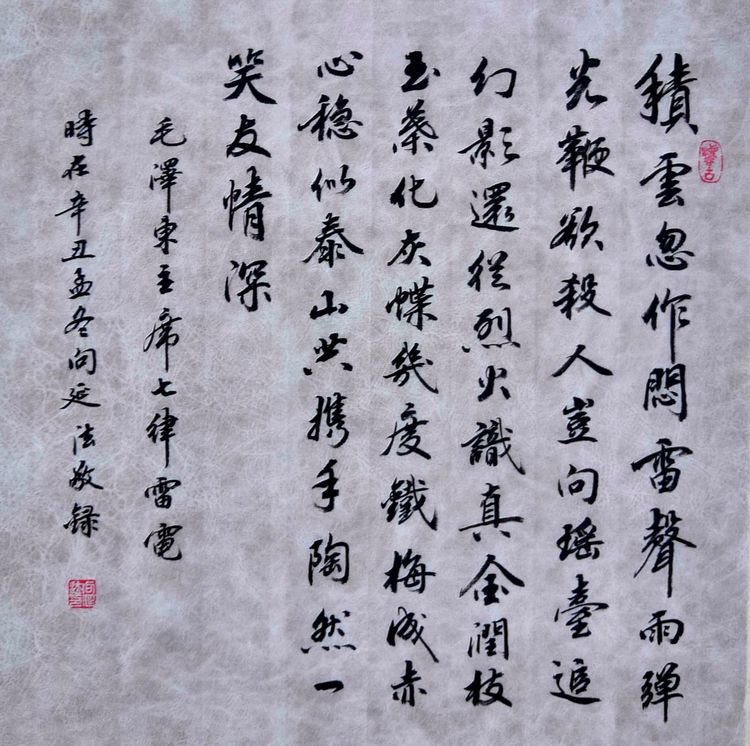 積雲忽作悶雷聲雨彈
光鞭欲殺人豈向瑤臺追
幻影還從烈火識真金潤枝
玉葉化灰蝶幾度鐵梅成赤
心穩似泰山共攜手陶然一
笑友情深
毛澤東主席七律雷電
時在辛丑孟冬向延法敬録